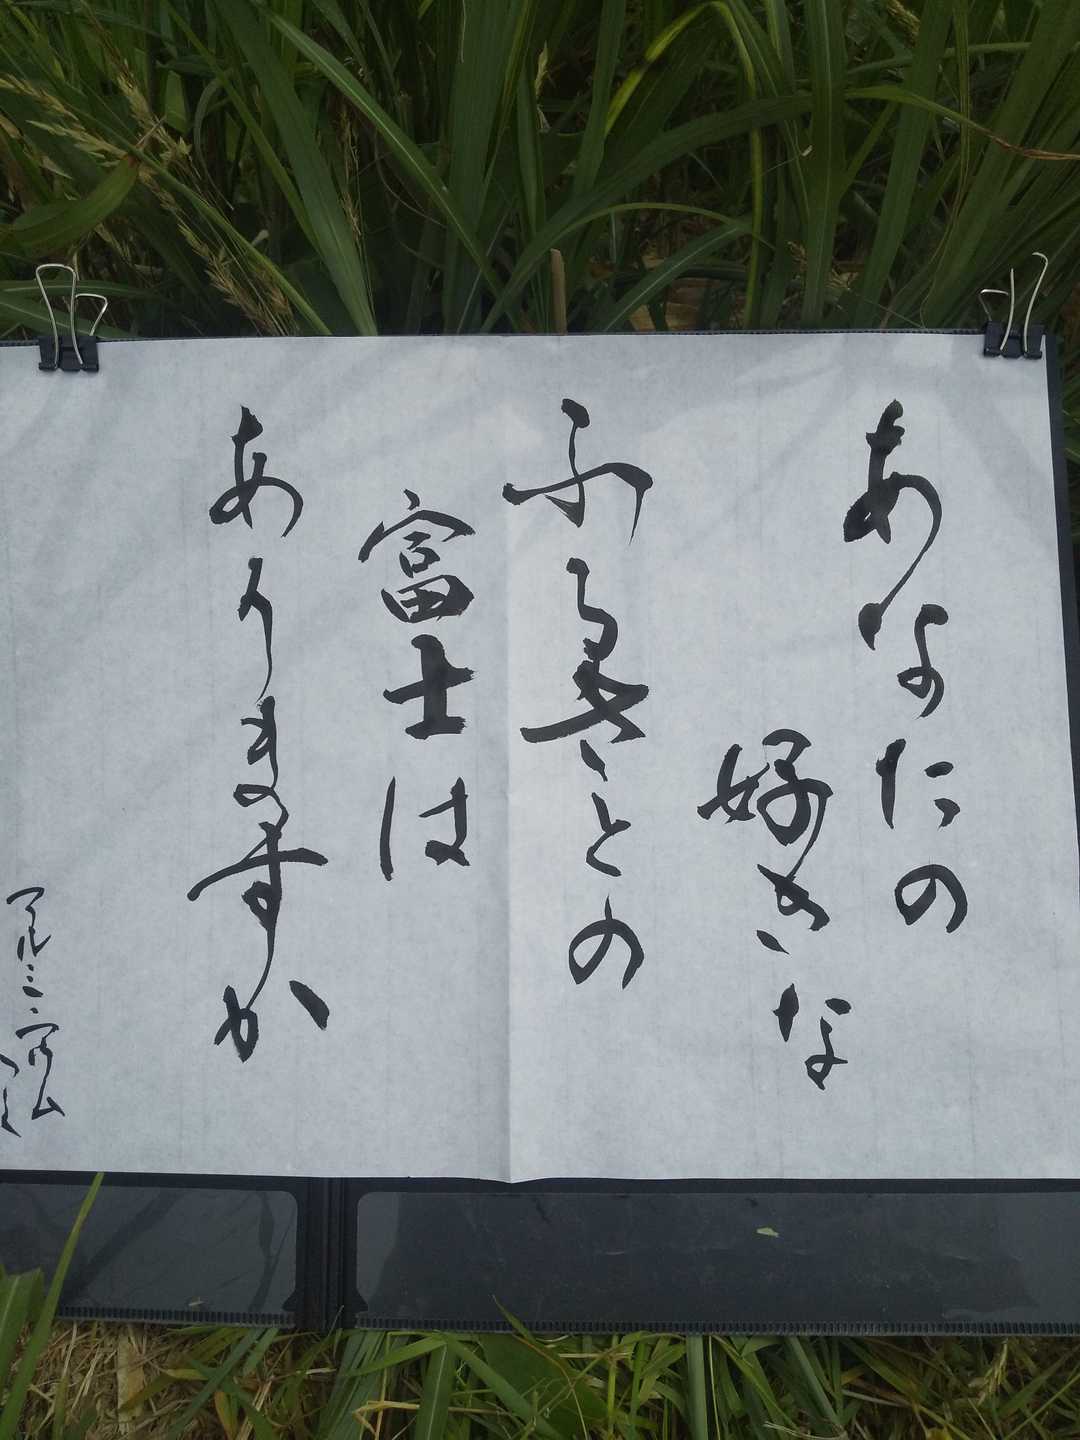 あなたの
好きな
ふるさとの
富士は
ありますか